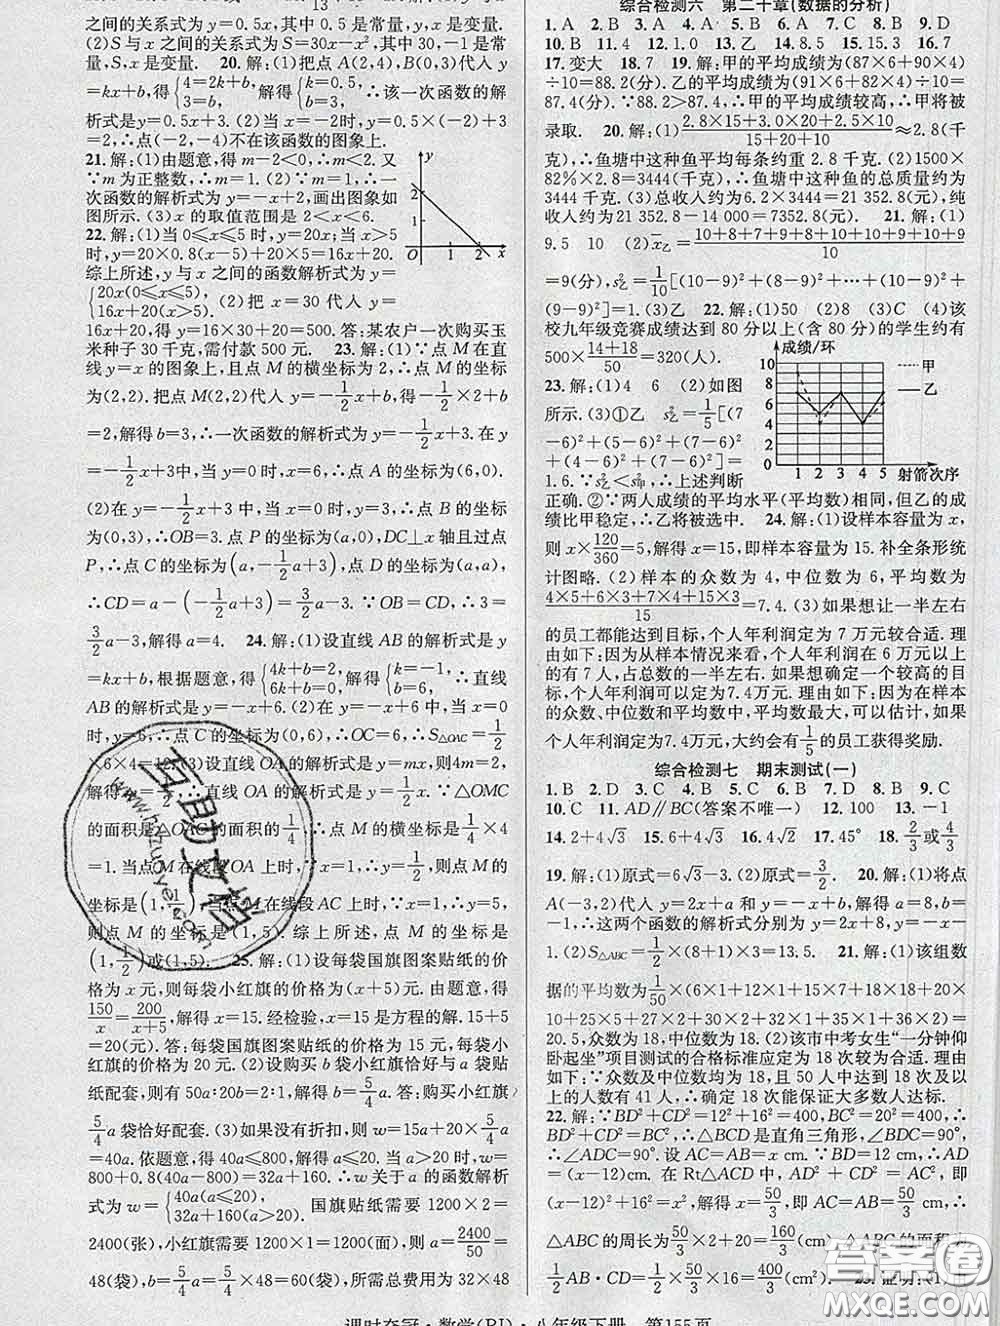 之间的关系式为y=0.5x,其中0.5是常量,y,x是变量.
(2)S与x之间的关系式S=30x-x²,其中30,-1是常
量,S,x是变量. 20.解:(1)把点A(2,4),B(0,3)代入y
=kx+b,得{4=2k+b, 3=b, 解得{k=1/2, b=3, ∴该一次函数的解
析式为y=0.5x+3. (2)当x=-2时,y=0.5×(-2)+3
=2,∴点(-2,-4)不在该函数的图象上.
21.解:(1)由题意,得m-2<0,∴m<2.又
∵m为正整数,∴m=1. (2)由(1),得∴一
次函数的解析式为y=-x+2,画出图象如
图所示. (3)x的取值范围是2<x<6.
22.解:(1)当0≤x≤5时,y=20x;当x>5
时,y=20×0.8(x-5)+20×5=16x+20.
综上所述,y与x之间的函数解析式为y=
{20x(0≤x≤5), 16x+20(x>5). (2)把x=30代入y=
16x+20,得y=16×30+20=500.答:某农户一次购买玉
米种子30千克,需付款500元. 23.解:(1)∵点M在直
线y=x的图象上,且点M的横坐标为2,∴点M的坐标
为(2,2).把点M(2,2)代入y=-1/2x+b,得-1/2×2+b
=2,解得b=3,∴一次函数的解析式为y=-1/2x+3.在y=
-1/2x+3中,当y=0时,x=6,∴点A的坐标为(6,0).
(2)在y=-1/2x+3中,当x=0时,y=3,∴点B的坐标
为(0,3),∴OB=3.∵点P的坐标为(a,0),DC⊥x轴且过点
P,∴点C的坐标为(a,-1/2a+3),点D的坐标为(a,a),
∴CD=a-(-1/2a+3)=3/2a-3.∵OB=CD,∴3=
3/2a-3,解得a=4. 24.解:(1)设直线AB的解析式是y
=kx+b,根据题意,得{4k+b=2, 6k+b=0, 解得{k=-1, b=6, ∴直线
AB的解析式是y=-x+6. (2)在y=-x+6中,令x=0,解得
y=6,∴点C的坐标为(0,6),∴OC=6,∴S△OAC=1/2
×6×4=12. (3)设直线OA的解析式是y=mx,则4m=2,
解得m=1/2,∴直线OA的解析式是y=1/2x.∵△OMC
的面积是△OAC的面积的1/4,∴点M的横坐标为1/4×4
=1.当点M在线段OA上时,∵x=1,∴y=1/2,则点M的
坐标为(1,1/2);当点M在线段AC上时,∵x=1,∴y=5,
则点M的坐标是(1,5).综上所述,点M的坐标是
(1,1/2)或(1,5). 25.解:(1)设每袋国旗图案贴纸的价格
为x元,则每袋小红旗的价格为(x+5)元.由题意,得
150/x=200/(x+5),解得x=15.经检验,x=15是方程的解.15+5
=20(元).答:每袋国旗图案贴纸的价格为15元,每袋小
红旗的价格为20元. (2)设购买b袋小红旗恰好与a袋贴
纸配套,则有50a∶20b=2∶1,解得b=5/4a.答:购买小红旗
5/4a袋恰好配套. (3)如果没有折扣,则w=15a+20×5/4a=
40a.依题意,得40a≤800,解得a≤20.当a>20时,w=
800+0.8(40a-800)=32a+160.∴w关于a的函数解析
式为w={40a(a≤20), 32a+160(a>20). 国旗贴纸需要1200×2=
2400(张),小红旗需要1200×1=1200(面),则a=2400/50=
48(袋),b=5/4a=5/4×48=60(袋),所需总费用为32×48
综合检测六 第二十章(数据的分析)
1.A 2.A 3.A 4.B 5.A 6.D 7.C 8.B 9.D
10.B 11.4 12.乙 13.6 14.8.5 15.15.3 16.7
17.变大 18.7 19.解:甲的平均成绩为(87×6+90×4)
÷10=88.2(分).乙的平均成绩为(91×6+82×4)÷10=
87.4(分).∵88.2>87.4,∴甲的平均成绩较高,∴甲将被
录取. 20.解:(1)(2.8×15+3.0×20+2.5×10)/(15+20+10)≈2.8(千
克),∴鱼塘中这种鱼平均每条约重2.8千克. (2)1500×
82%×2.8=3444(千克),∴鱼塘中这种鱼的总质量约为
3444千克. (3)总收入约为6.2×3444=21 352.8(元),纯
收入约为21 352.8-14 000=7352.8(元). 21.解:(1)
9.5 10 (2)x̄乙=(10+8+7+9+8+10+10+9+10+9)/10
=9(分),s²乙=1/10[(10-9)²+(8-9)²+(7-9)²+…+
(9-9)²]=1. (3)乙 22.解:(1)50 (2)8 (3)C (4)该
校九年级竞赛成绩达到80分以上(含80分)的学生约有
500×(14+18)/50=320(人).
成绩/环
甲
乙
射箭次序
23.解:(1)4 6 (2)如图
所示. (3)①乙 s²乙=1/5[(7
-6)²+(5-6)²+(7-6)²+
(4-6)²+(7-6)²]=
1.6.∵s²乙<s²甲,∴上述判断
正确.②∵两人成绩的平均水平(平均数)相同,但乙的成
绩比甲稳定,∴乙将被选中. 24.解:(1)设样本容量为x,
则x×120/360=5,解得x=15,即样本容量为15.补全条形统
计图略. (2)样本的众数为4,中位数为6,平均数为
(4×5+6×3+7×4+15×3)/15=7.4. (3)如果想让一半左右
的员工都能达到目标,个人年利润定为7万元较合适.理
由如下:因为从样本情况来看,个人年利润在6万元以上
的有7人,占总数的一半左右.如果想确定一个较高的目
标,个人年利润可以定为7.4万元.理由如下:因为在样本
的众数、中位数和平均数中,平均数最大,可以估计,如果
个人年利润定为7.4万元,大约会有1/5的员工获得奖励.
综合检测七 期末测试(一)
1.B 2.D 3.C 4.D 5.A 6.D 7.B 8.B 9.C
10.C 11.AD∥BC(答案不唯一) 12.100 13.-1
14.2+4√3 15.6+4√3 16.4 17.45° 18.2/3或4/3
19.解:(1)原式=6√3-3. (2)原式=3/2. 20.解:(1)将点
A(-3,2)代入y=2x+a和y=-x+b,得a=8,b=
-1,∴这两个函数的解析式分别为y=2x+8,y=-x-
1. (2)S△ABC=1/2×(8+1)×3=13.5. 21.解:(1)该组数
据的平均数为1/50×(6×1+12×1+15×7+18×18+20×
10+25×5+27×2+30×2+32×1+35×1+36×2)=
20.5,众数为18,中位数为18. (2)该市中考女生“一分钟仰
卧起坐”项目测试的合格标准应定为18次较为合适.理由
如下:∵众数及中位数均为18,且50人中达到18次及以
上的人数有41人,∴确定18次能保证大多数人达标.
22.解:∵BD²+CD²=12²+16²=400,BC²=20²=400,∴
BD²+CD²=BC²,∴△BCD是直角三角形,∠BDC=90°,
∴∠ADC=90°.设AB=AC=x cm,则AD=AB-BD
=(x-12)cm.在Rt△ACD中,AD²+CD²=AC²,即
(x-12)²+16²=x²,解得x=50/3,即AC=AB=50/3 cm,∴
△ABC的周长为50/3×2+20=160/3(cm).△ABC的面积为
1/2AB·CD=1/2×50/3×16=400/3(cm²). 23.证明:(1)
课时夺冠·数学(RJ)·八年级下册 第155页
互助文档
www.hzuoye.com
答案圈
MXQE.COM